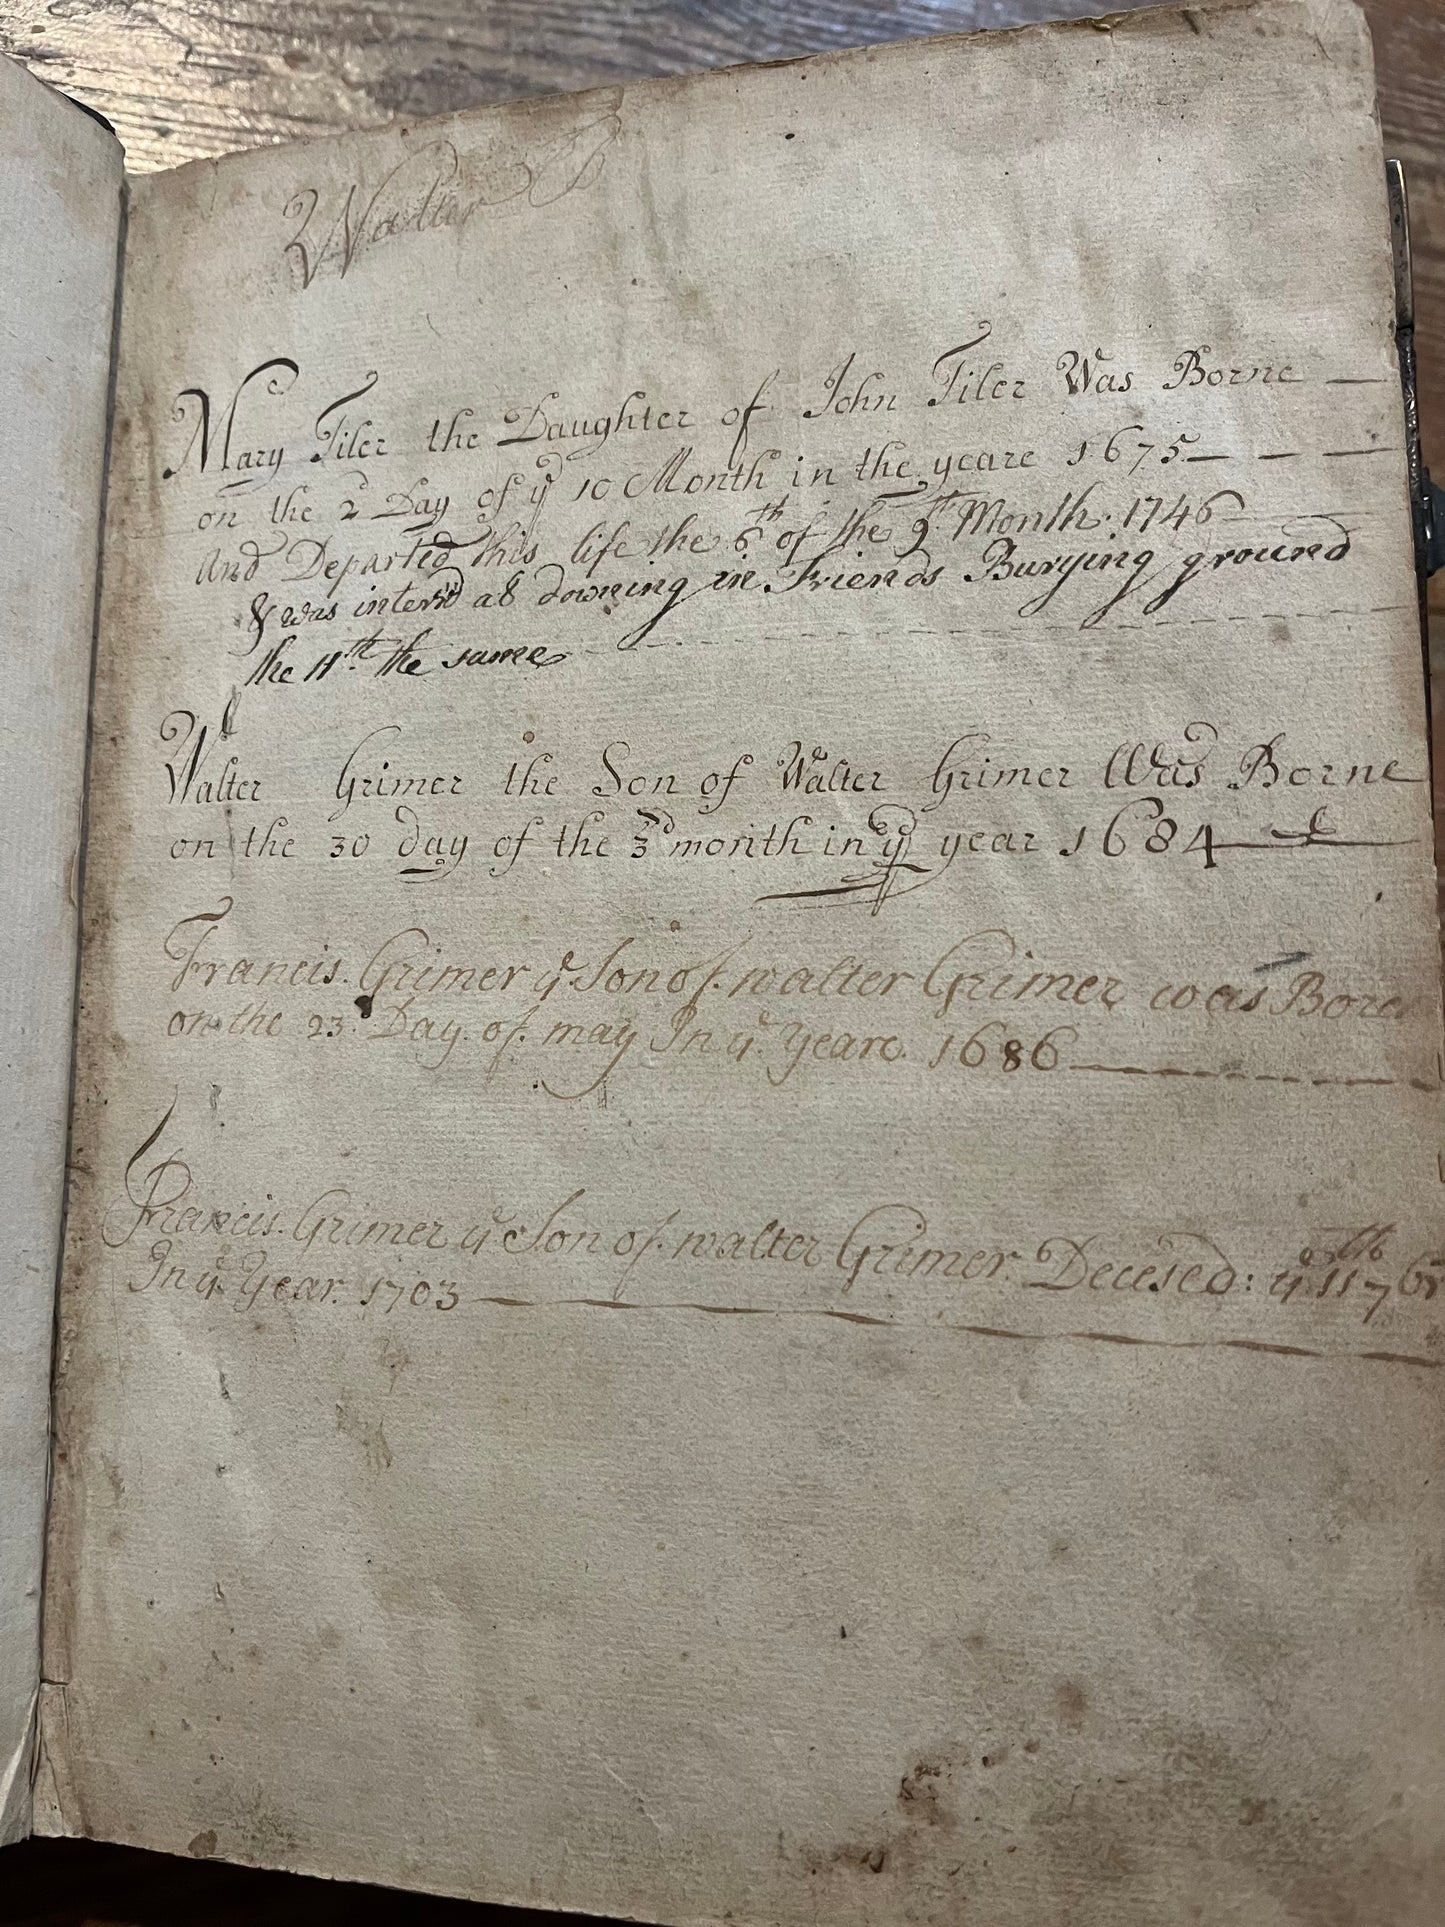 Walter
Mary Tiler the Daughter of John Tiler Was Borne
on the 2d Day of ye 10 Month in the yeare 1675
And Departed this life the 6th of the 9th Month. 1746
& was interr'd at downing in Friends Burying ground
the 11th the same
Walter Grimer the Son of Walter Grimer Was Borne
on the 30 day of the 3d month in ye year 1684
Francis. Grimer ye Son of. walter Grimer was Borne
on the 23. Day. of. may In ye. yeare. 1686
Francis. Grimer ye Son of. walter Grimer. Decesed: ye 11th 7br
In ye. Year. 1703